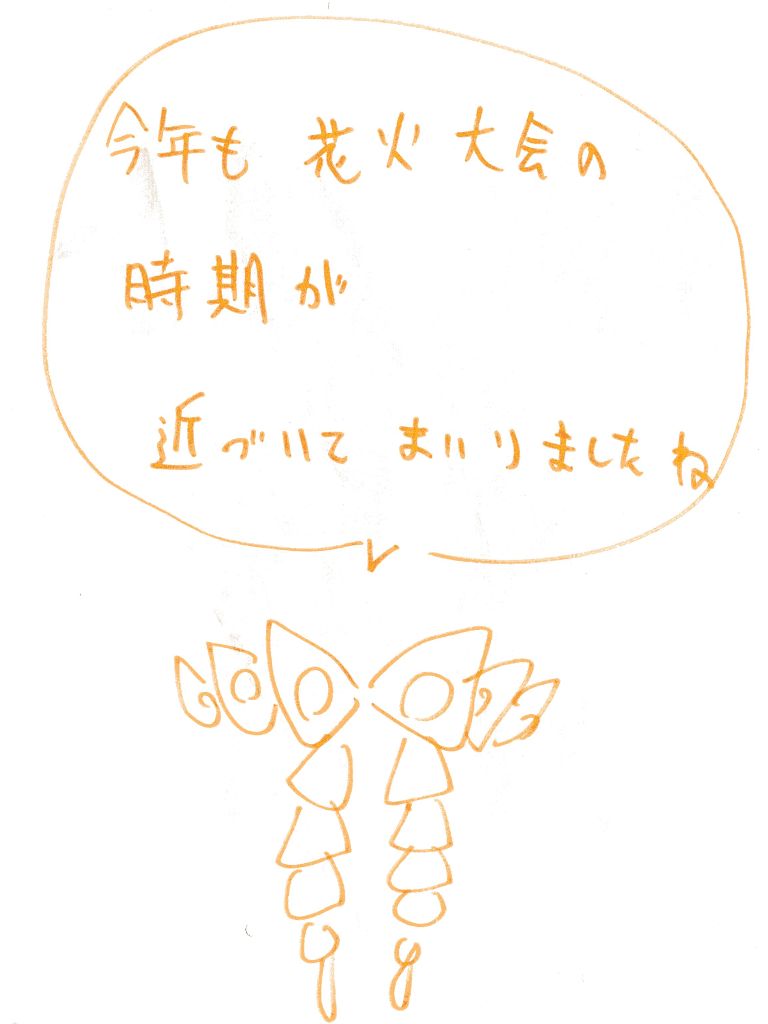 今年も 花火大会の
時期が
近づいて まいりましたね